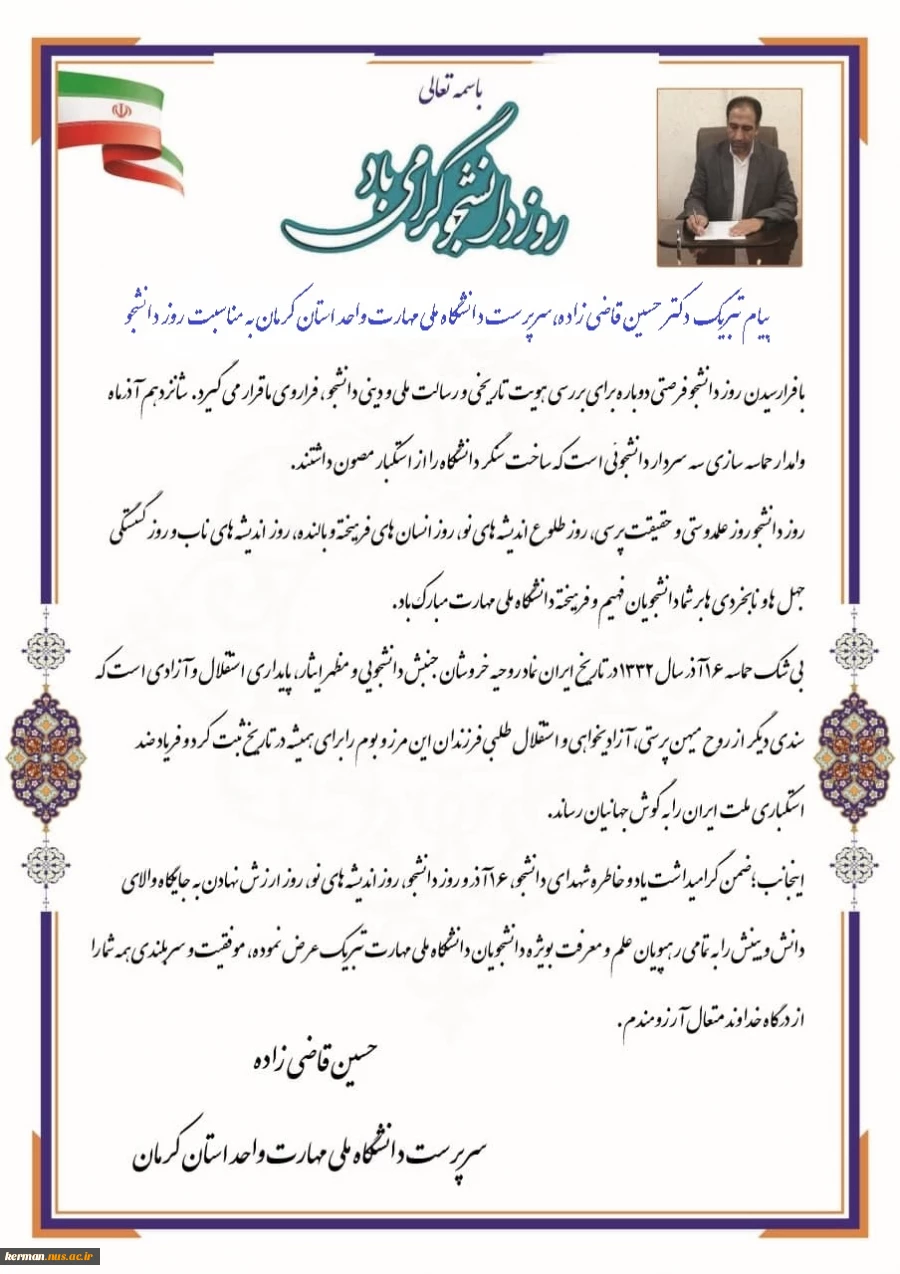 باسمه تعالی
روز دانشجو گرامی باد
پیام تبریک دکتر حسین قاضی زاده، سرپرست دانشگاه ملی مهارت واحد استان کرمان به مناسبت روز دانشجو
بافرارسیدن روز دانشجو فرصتی دوباره برای بررسی هویت تاریخی و رسالت ملی و دینی دانشجو، فراروی ما قرار می گیرد. شانزدهم آذرماه
وامدار حماسه سازی سه سردار دانشجوئی است که ساخت سنگر دانشگاه را از استکبار مصون داشتند.
روز دانشجو روز علمدوستی و حقیقت پرسی، روز طلوع اندیشه های نو، روز انسان های فرهیخته و بالنده، روز اندیشه های ناب و روز گسستگی
جهل ها و نابخردی ها بر شما دانشجویان فهیم و فرهیخته دانشگاه ملی مهارت مبارک باد.
بی شک حماسه ۱۶آذر سال ۱۳۳۲در تاریخ ایران نماد روحیه خروشان جنبش دانشجویی و مظهر ایثار، پایداری استقلال و آزادی است که
سندی دیگر از روح میهن پرستی، آزادیخواهی و استقلال طلبی فرزندان این مرز و بوم را برای همیشه در تاریخ ثبت کرد و فریاد ضد
استکباری ملت ایران را به گوش جهانیان رساند.
اینجانب؛ضمن گرامیداشت یاد و خاطره شهدای دانشجو، ۱۶آذر و روز دانشجو، روز اندیشه های نو، روز ارزش نهادن به جایگاه والای
دانش و بینش را به تمامی رهپویان علم و معرفت بویژه دانشجویان دانشگاه ملی مهارت تبریک عرض نموده، موفقیت و سربلندی همه شما را
از درگاه خداوند متعال آرزومندم.
حسین قاضی زاده
سرپرست دانشگاه ملی مهارت واحد استان کرمان
kerman.nus.ac.ir